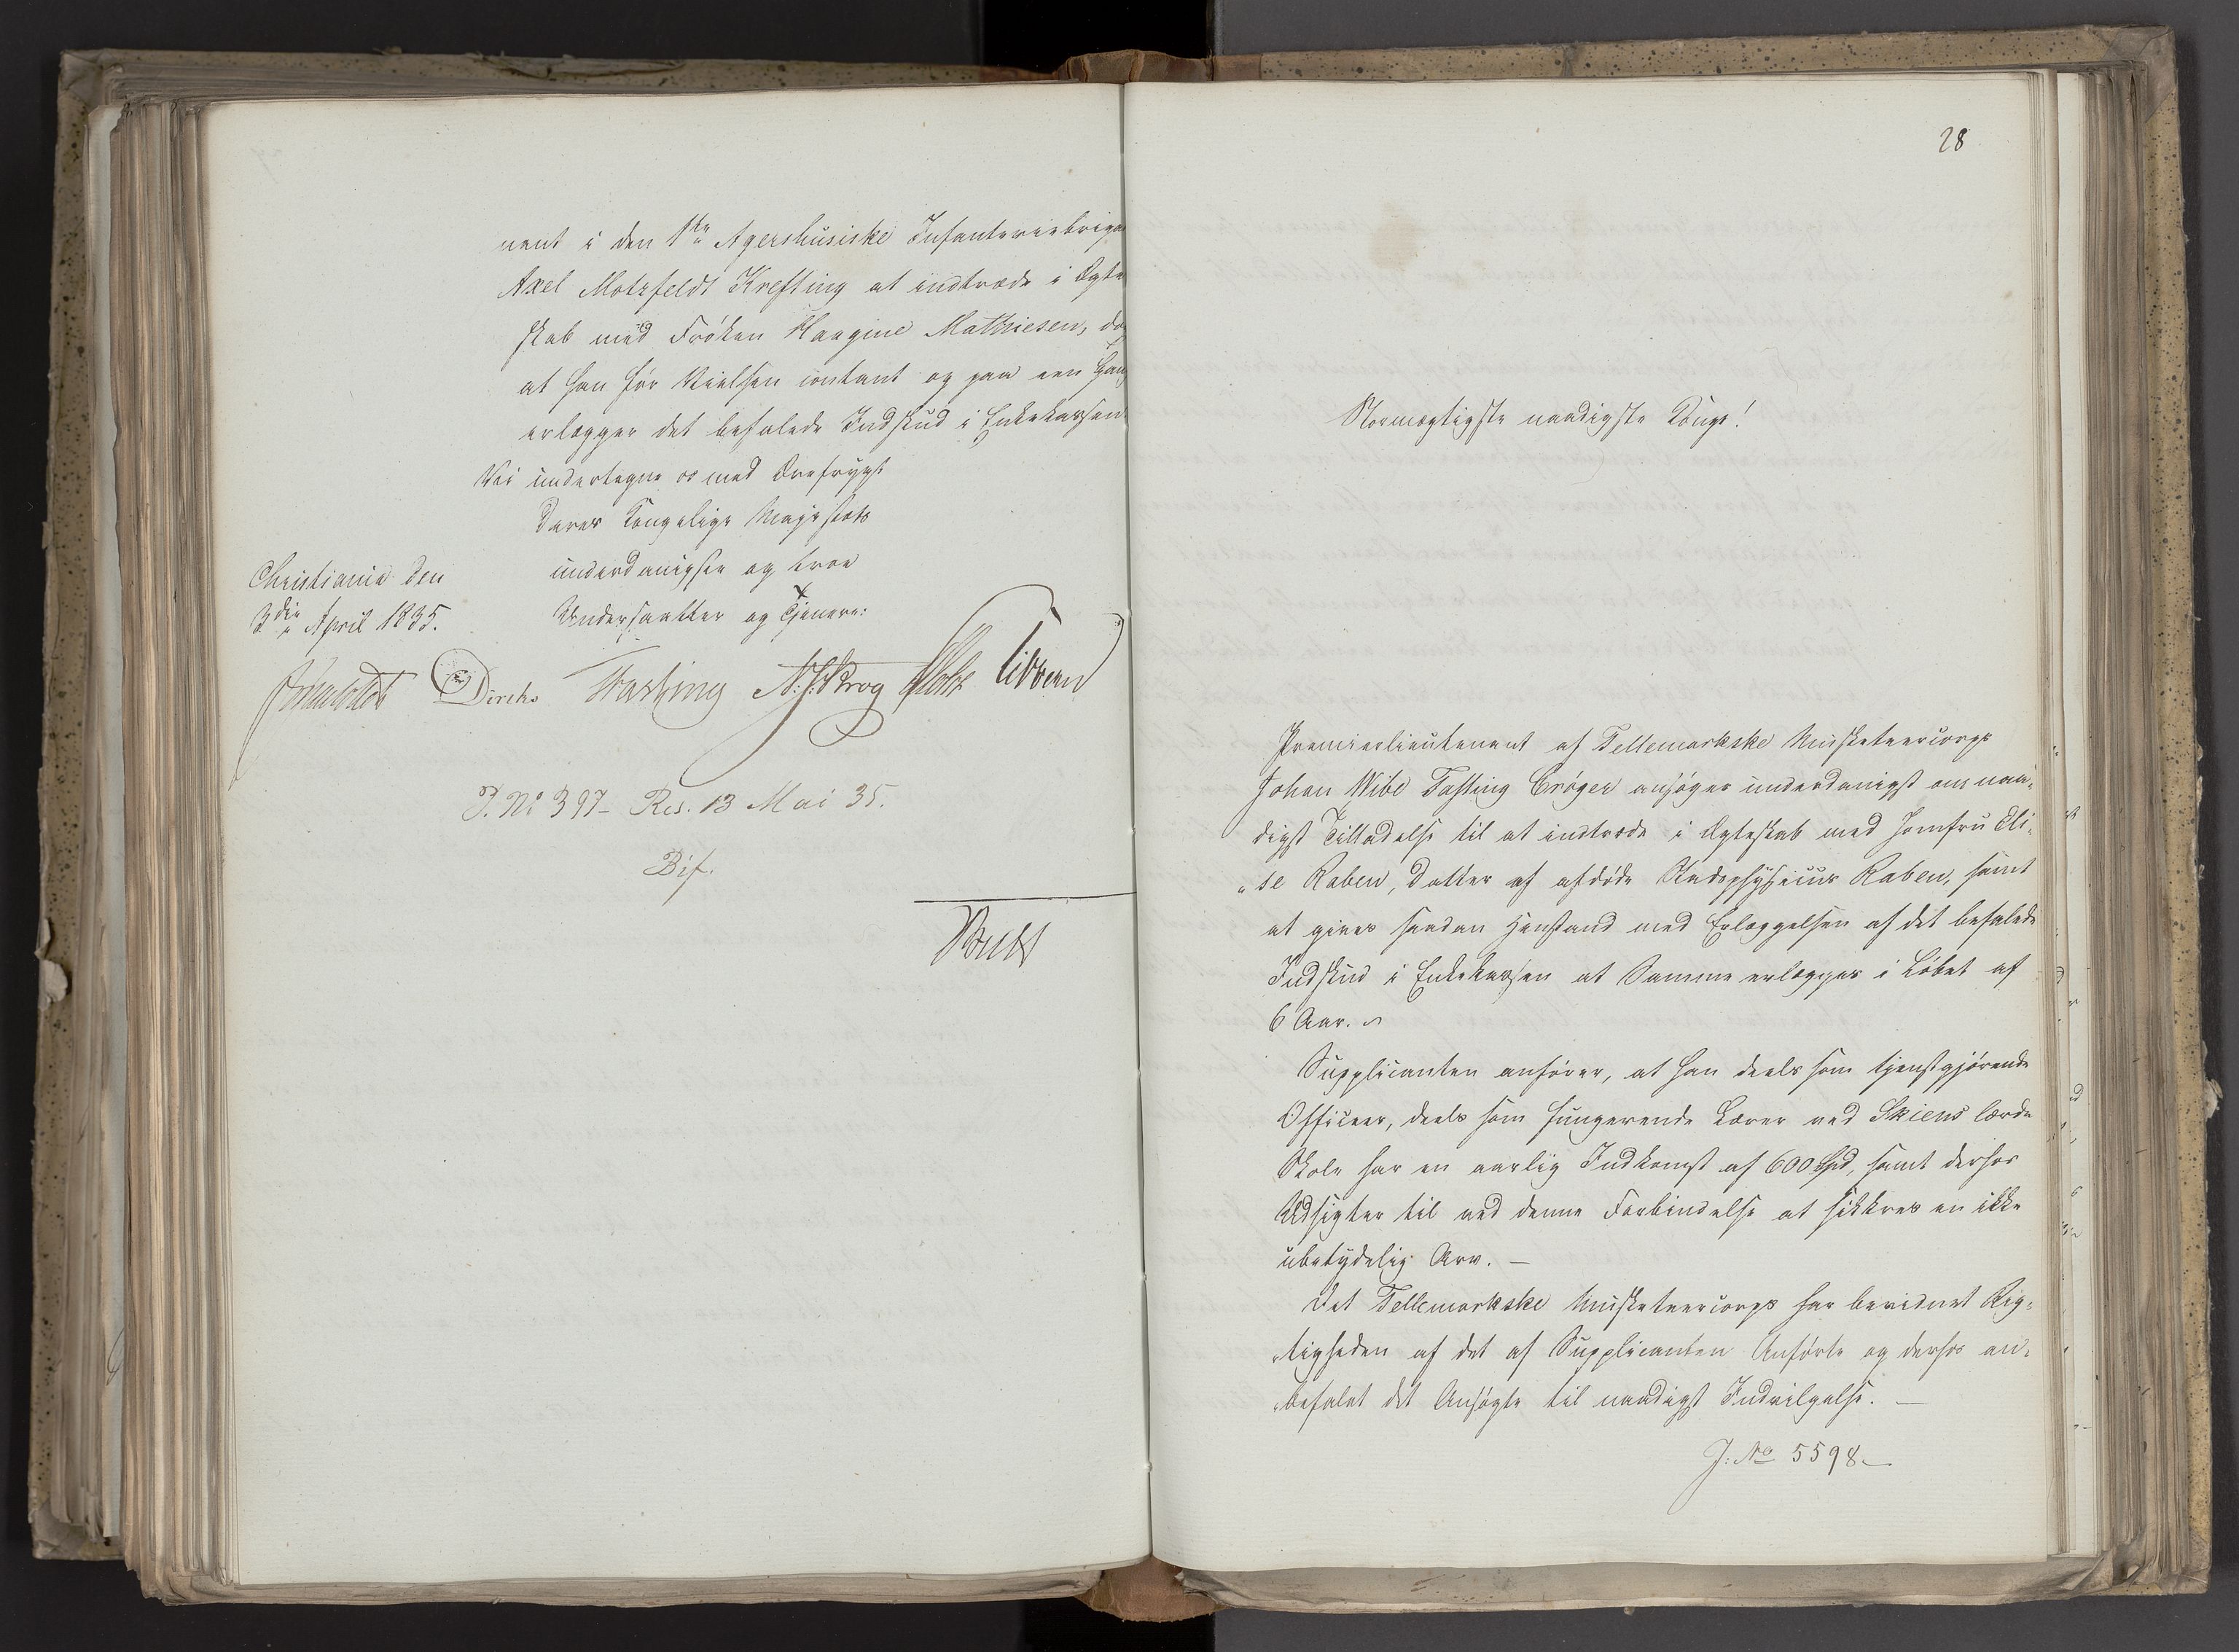 nent i den 1ste Agershusiske Infanteriebriga
Axel Motzfeldt Krefting at indtræde i Ægte
skab med Frøken Haagine Mathiesen, dog
at han før Vielsen contant og paa een Gang
erlægger det befalede Indskud i Enkekassen
Vi undertegne os med Ærefrygt
Deres Kongelige Majestæts
underdanigste og troe
Undersaatter og Tjenere:
Christiania den
3die April 1835.
Diriks Fasting N. J. Krog Holst Vibbern
J. No 397 - Res. 13 Mai 35.
Bif.
28
Stormægtigste naadigste Konge!
Premierlieutenant af Tellemarkske Musketeercorps
Johan Wibe Fasting Crøger ansøger underdanigst om naa-
digst Tilladelse til at indtræde i Ægteskab med Jomfru Eli-
"se Raben, Datter af afdøde Stadsphysicus Raben, samt
at gives saadan Henstand med Erlæggelsen af det befalede
Indskud i Enkekassen at Samme erlægges i Løbet af
6 Aar.
Supplicanten anfører, at han deels som tjenstgjørende
Officeer, deels som fungerende Lærer ved Skiens lærde
Skole har en aarlig Indkomst af 600 Spd, samt derhos
Udsigter til ved denne Forbindelse at sikkres en ikke
ubetydelig Arv. —
Det Tellemarkske Musketeercorps har bevidnet Rig-
"tigheden af det af Supplicanten Anførte og derhos an-
"befalet det Ansøgte til naadigst Indvilgelse. —
J: No 5598 —